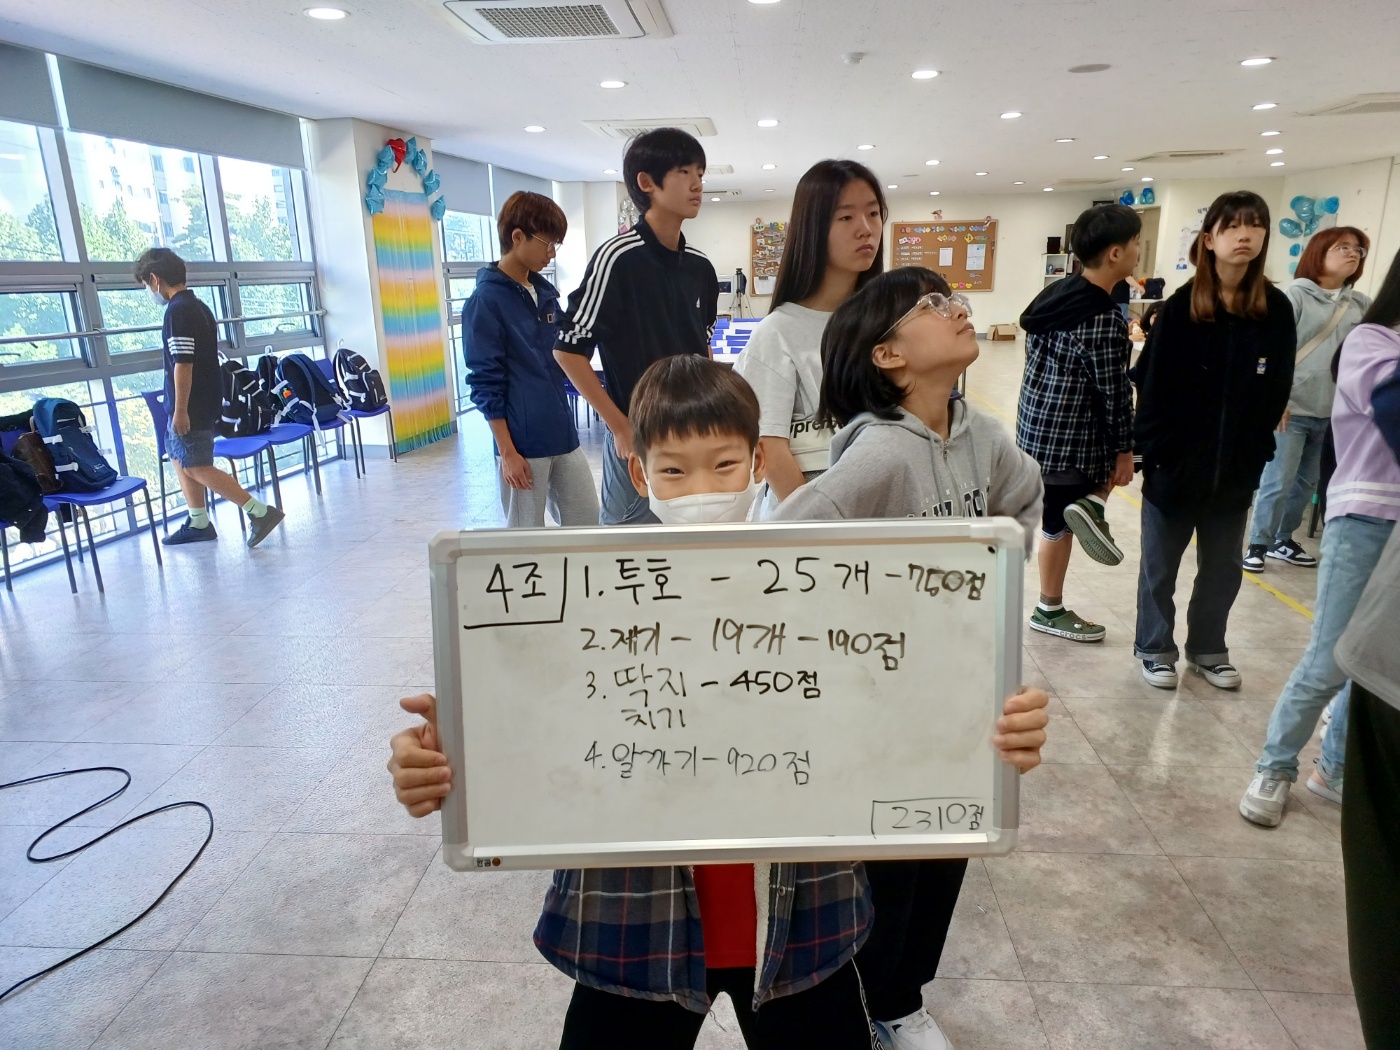 4조
1. 투호 - 25개 - 750점
2. 제기 - 19개 - 190점
3. 딱지 - 450점
치기
4. 알까기 - 920점
2310점
crocs